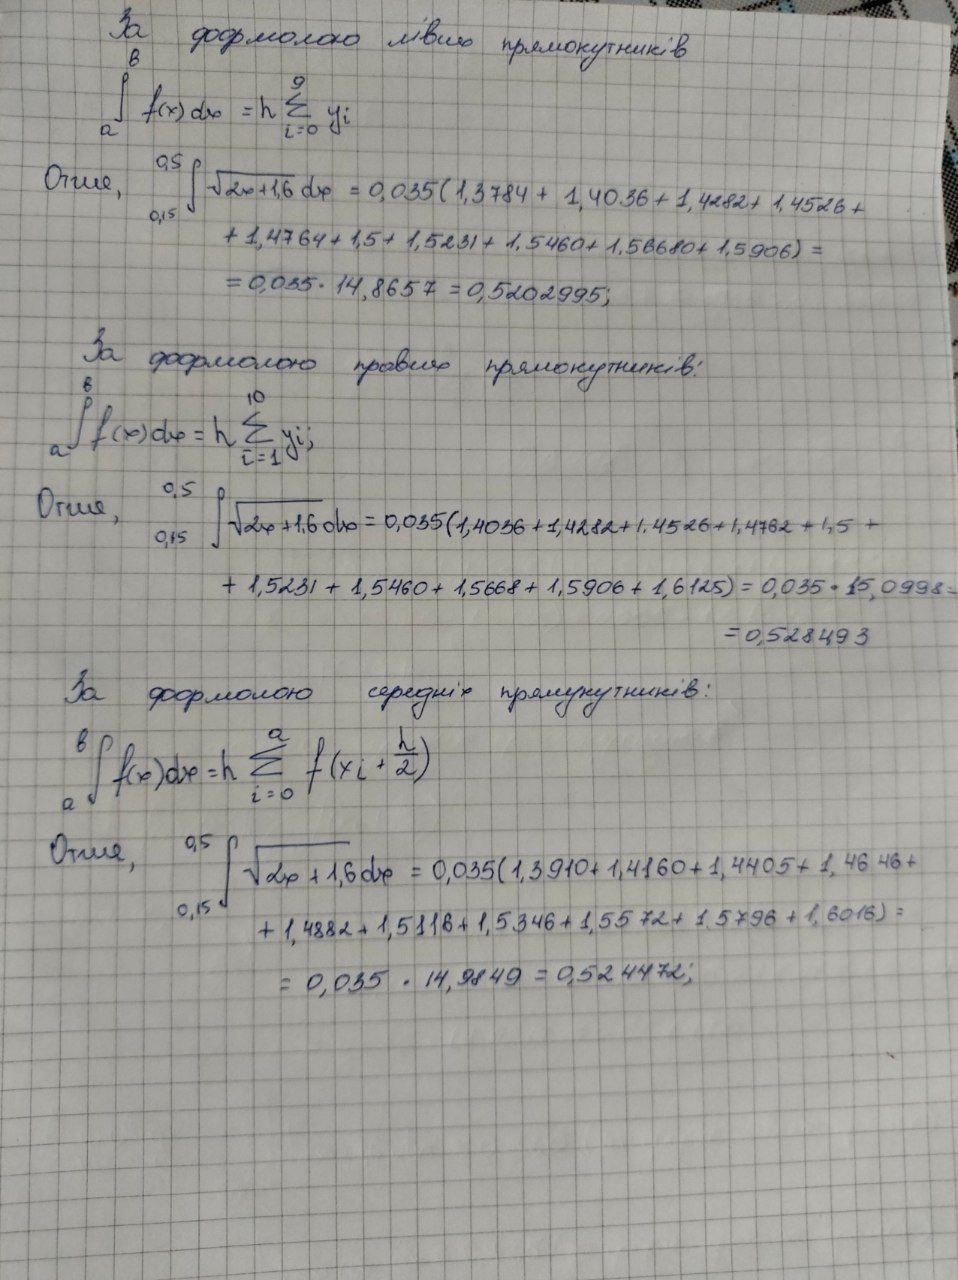 За формолою лівих прямокутників
∫_a^b f(x)dx = h ∑_{i=0}^{9} yi
Отже, ∫_{0,15}^{0,5} √(2x+1,6) dx = 0,035(1,3784 + 1,4036 + 1,4282 + 1,4526 +
+ 1,4764 + 1,5 + 1,5231 + 1,5460 + 1,56680 + 1,5906) =
= 0,035 · 14,8657 = 0,5202995;
За формолою правих прямокутників:
∫_a^b f(x)dx = h ∑_{i=1}^{10} yi;
Отже, ∫_{0,15}^{0,5} √(2x+1,6) dx = 0,035(1,4036 + 1,4282 + 1,4526 + 1,4762 + 1,5 +
+ 1,5231 + 1,5460 + 1,5668 + 1,5906 + 1,6125) = 0,035 · 15,0998 =
= 0,528493
За формолою середніх прямукутників:
∫_a^b f(x)dx = h ∑_{i=0}^{a} f(xi + h/2)
Отже, ∫_{0,15}^{0,5} √(2x+1,6) dx = 0,035(1,3910 + 1,4160 + 1,4405 + 1,4646 +
+ 1,4882 + 1,5116 + 1,5346 + 1,5572 + 1.5796 + 1,6016) =
= 0,035 · 14,9849 = 0,524472;